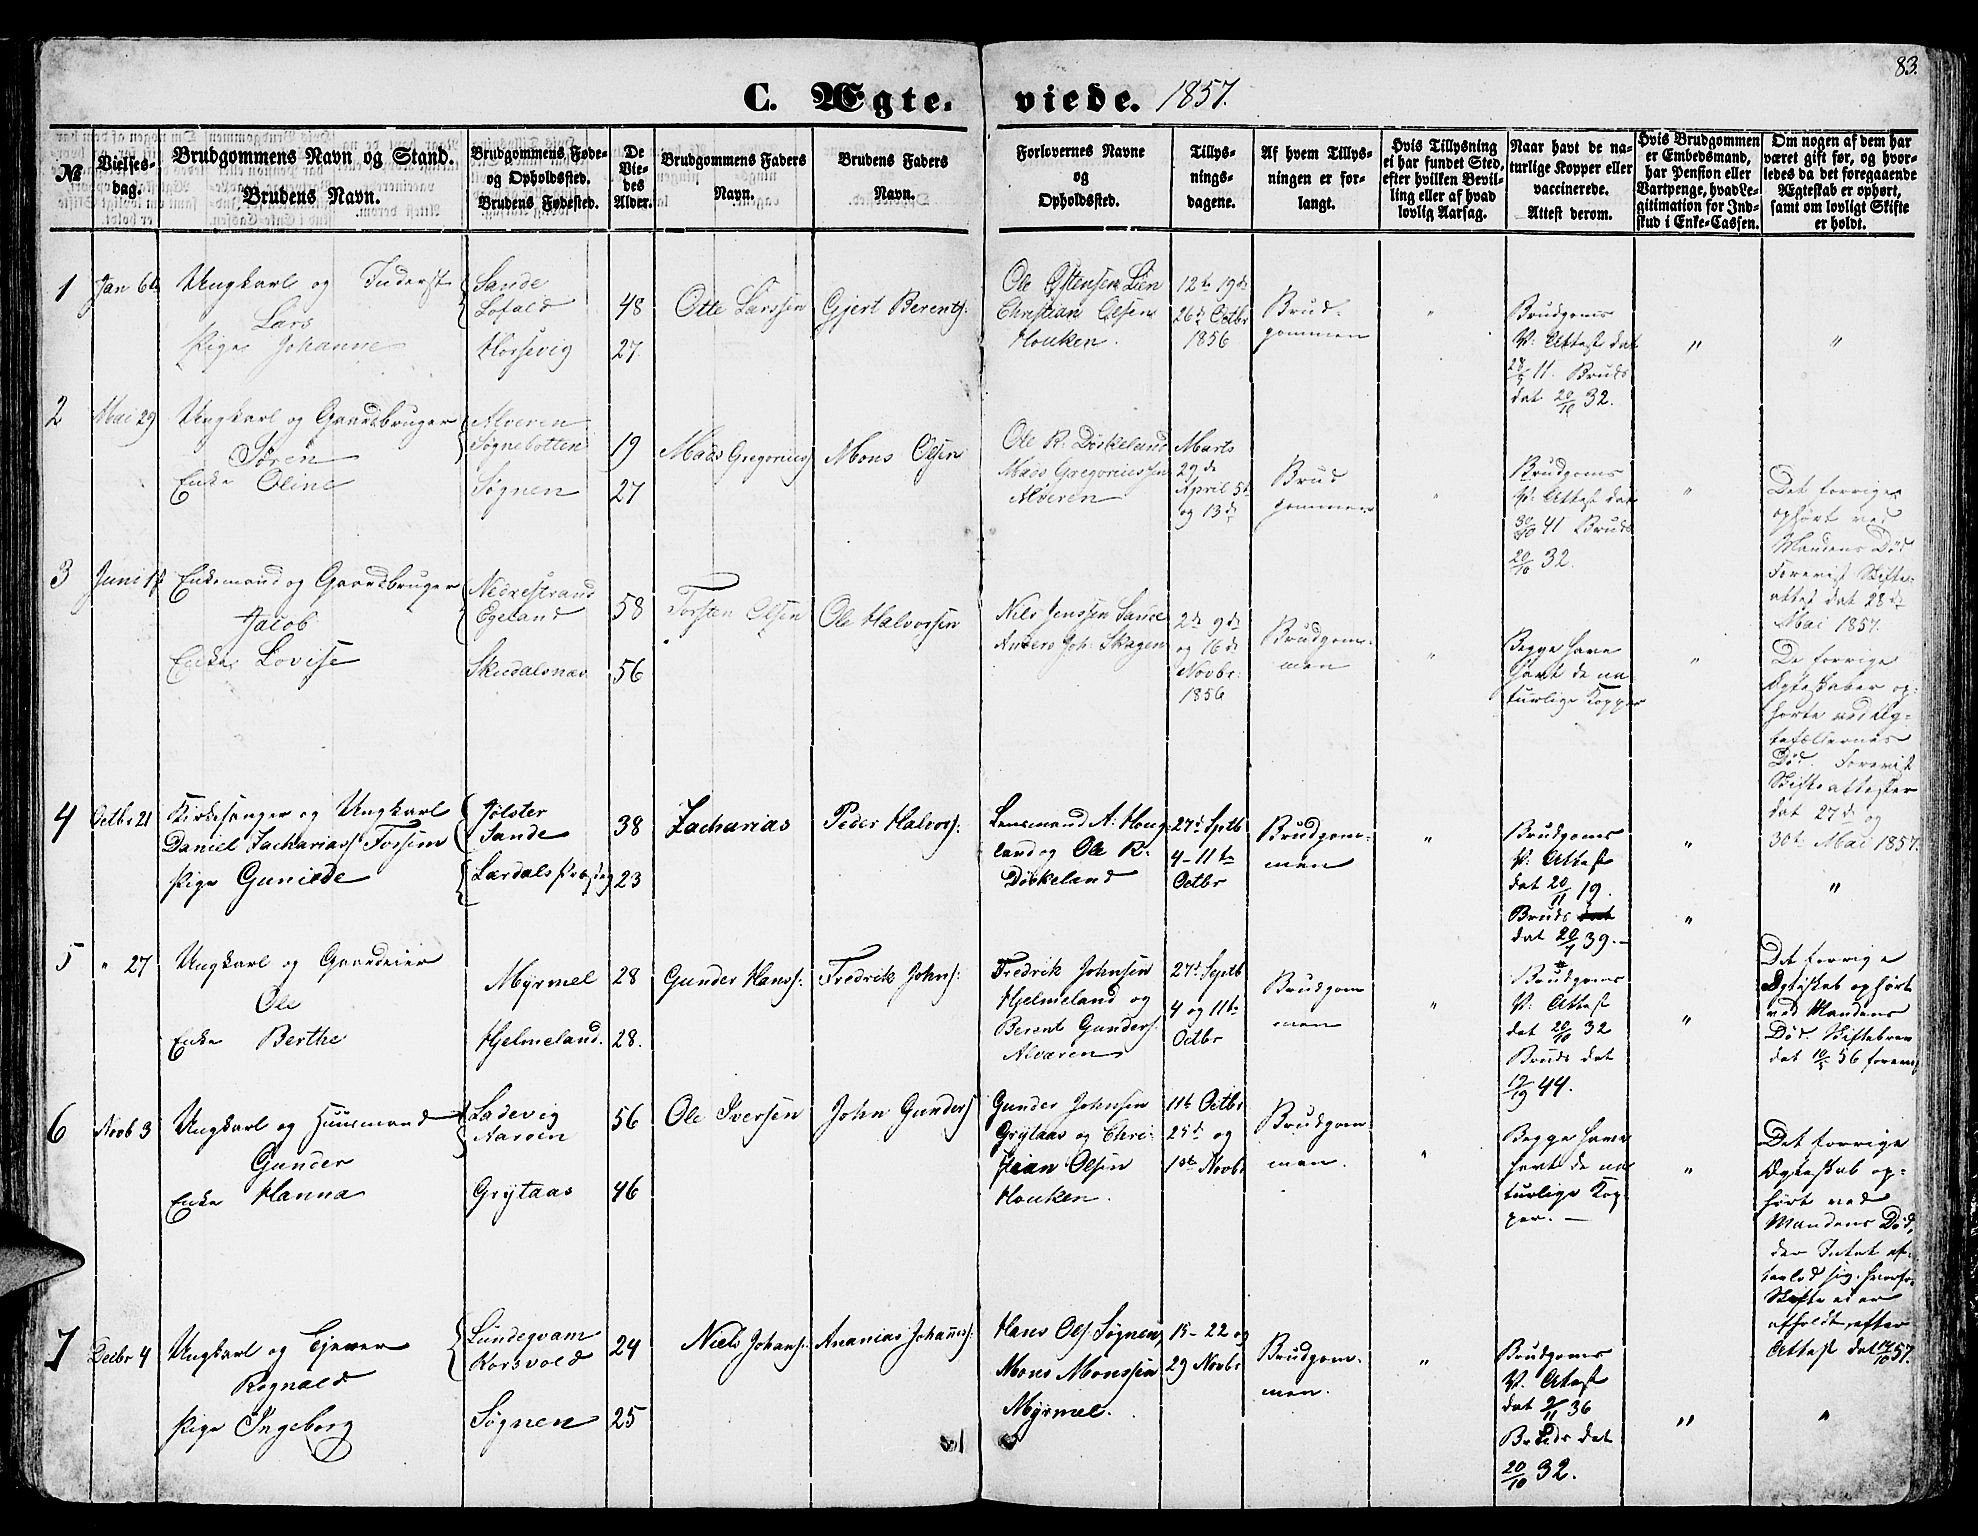 83.
C. Ægteviede. 1857.
№
Vielses-
dag.
Brudgommens Navn og Stand.
Brudens Navn.
Brudgommens Føde-
og Opholdssted.
Brudens Fødested.
De
Vie-
des
Alder.
Brudgommens Faders
Navn.
Brudens Faders
Navn.
Forlovernes Navne
og
Opholdssted.
Tillys-
nings-
dagene.
Af hvem Tillys-
ningen er for-
langt.
Hvis Tillysning
ei har fundet Sted,
efter hvilken Bevil-
ling eller af hvad
lovlig Aarsag.
Naar havt de na-
turlige Kopper eller
vaccinerede.
Attest derom.
Hvis Brudgommen
er Embedsmand,
har Pension eller
Vartpenge, hvad Le-
gitimation for Ind-
skud i Enke-Cassen.
Om nogen af dem har
været gift før, og hvor-
ledes da det foregaaende
Ægteskab er ophørt,
samt om lovligt Skifte
er holdt.
1
Jan 6te
Ungkarl og Inderst
Lars
Pige Johanne
Sande
Lofald
Horsevig
48
27
Otte Larssen
Gjert Berents:
Ole Østensen Lien
Christian Olsen
Houken.
12te 19de
26de Octbr
1856
Brud-
gommen
"
Brudgoms
V: Attest dat
28/5 11. Bruds
dat 20/10 32.
"
"
2
Mai 29
Ungkarl og Gaardbruger
Søren
Enke Oline
Alveren
Sognebotten
Søgnen
19
27
Mads Gregoriuss
Mons Olsen
Ole R. Døskeland
Mads Gregoriussen
Alveren
Marts
29de
April 5te
og 13de
Brud
gommen
"
Brudgoms
V: Attest dat
30/10 41 Bruds
20/10 32.
"
Det forrige
ophørt ved
Mandens Død
Forevist Skifte-
attest dat 28de
Mai 1857.
3
Juni 17
Enkemand og Gaardbruger
Jacob
Enke Lovise
Nedrestrand
Egeland
Skudalsnæs
58
56
Torsten Olsen
Ole Halvorsen
Nils Jenssen Sande
Anders Joh: Skagen
2de 9de
og 16de
Novbr.
1856
Brudgom-
men
"
Begge have
havt de na
turlige Kopper
"
De forrige
Ægteskaber op-
hørte ved Æg-
tefællernes
Død. Forevist
Skifteattester
dat 27de og
30te Mai 1857.
4
Octbr 21
Kirkesanger og Ungkarl
Daniel Zachariass Forsum
Pige Gunilde
Jølster
Sande
Lærdals Præsteg
38
23
Zacharias
Peder Halvors:
Lensmand A: Houg
land og Ole R.
Døskeland
27de Septb
4 - 11te
Octbr
Brudgom-
men
"
Brudgoms
V: Attest
dat 20/11 19.
Bruds dat
dat 20/7 39. -
"
"
5
" 27
Ungkarl og Gaardeier
Ole
Enke Berthe
Myrmel
Hjelmeland.
28
28.
Gunder Hanss:
Fredrik Johns:
Fredrik Johnsen
Hjelmeland og
Berent Gunders:
Alværen
27de Septb
4 og 11te
Octbr
Brudgom
men
"
Brudgoms
V: Attest
dat 20/10 32
Bruds dat
12/9 44.
"
Det forrige
Ægteskab ophørt
ved Mandens
Død. Skiftebrev
dat 10/5 56 forevist
6
Novb 3
Ungkarl og Huusmand
Gunder
Enke Hanna
Ladevig
Aarøen
Grytaas
56
46
Ole Iversen
John Gunders
Gunder Johnsen
Grytaas og Chri-
stian Olsen
Houken.
11te Octbr
25de og
1ste Novbr
Brudgom
men.
"
Begge have
havt de na
turlige Kop
per. -
"
Det forrige
Ægteskab op-
hørt ved
Mandens Død,
der Intet ef-
terlod sig, hvorfor
Skifte ei er
afholdt, efter
Attest dat 14/10 57.
7
Decbr 4
Ungkarl og Eiener
Rognald
Pige Ingeborg
Lundeqvam
Korsvold
Søgnen
24
25
Niels Johans:
Ananias Johanness:
Hans Ols: Søgnen,
Mons Monssen
Myrmel.
15 - 22 og
29 Novbr
Brudgom-
men.
"
Brudgoms
V. Attest
dat 2/11 36
Bruds dat
20/10 32.
"
"